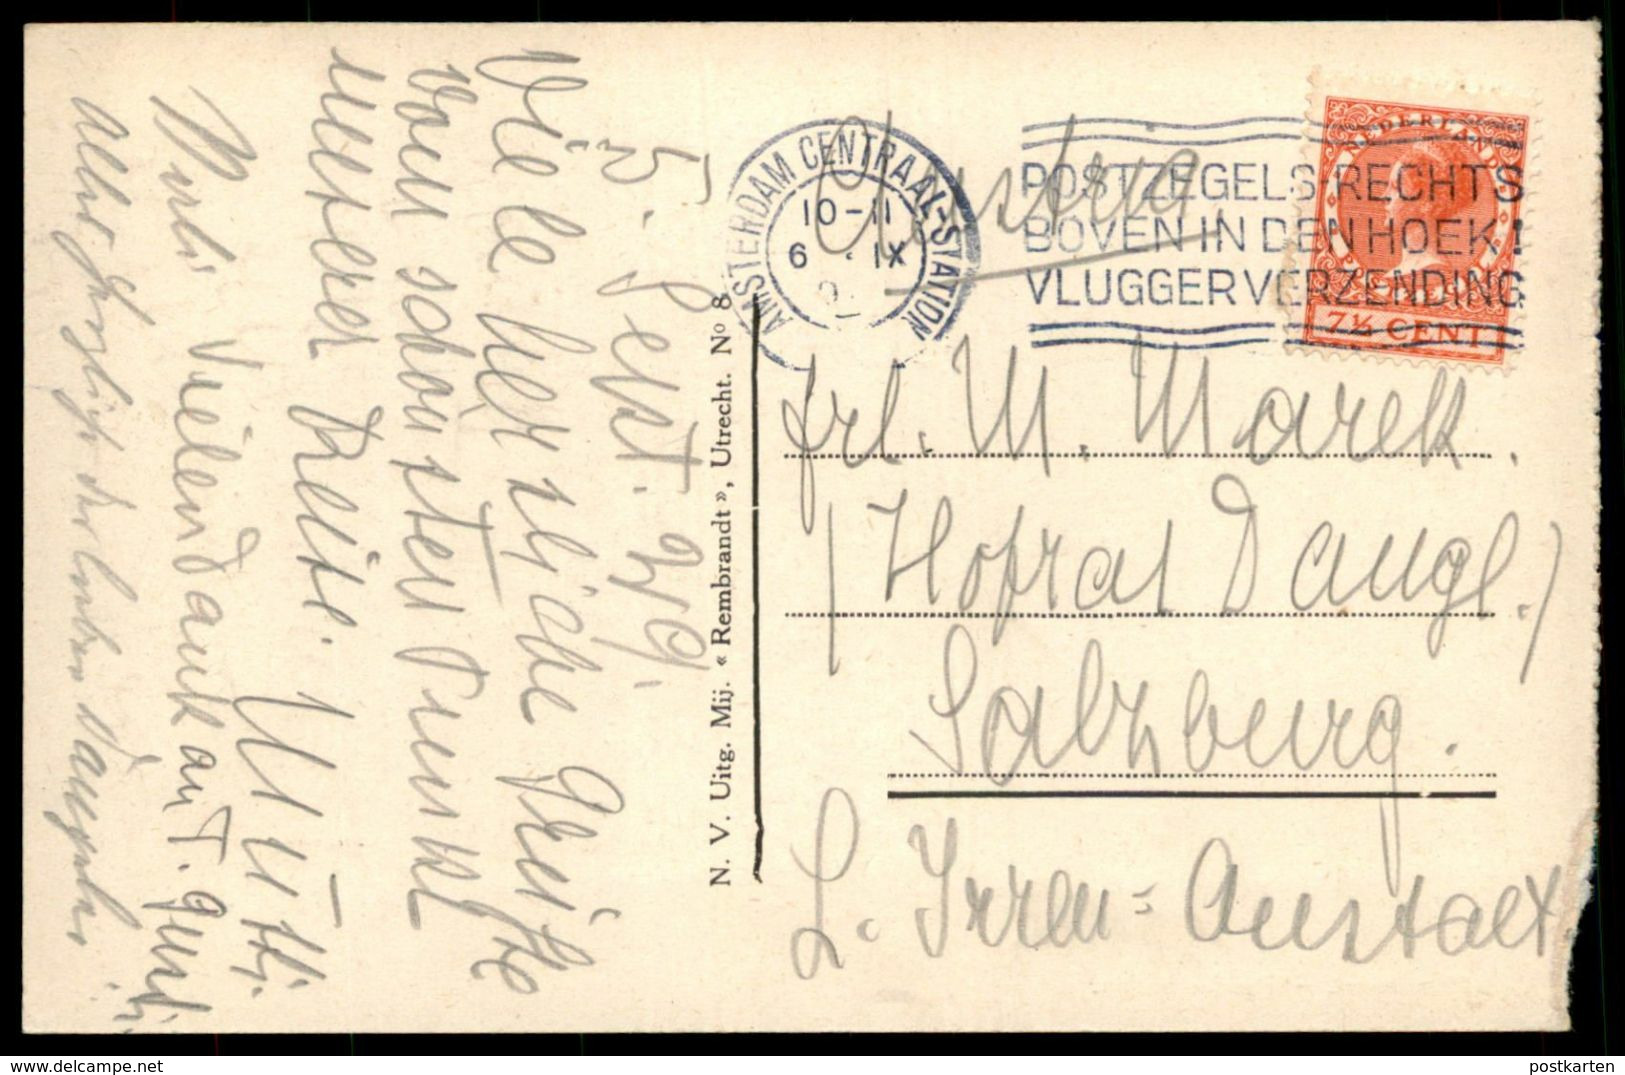 5. Sept. 29.
Viele herzliche Grüße
vom schönsten Punkt
unserer Reise. Mutti.
Vielen Dank an T. Gusti
N. V. Uitg. Mij. « Rembrandt », Utrecht. Nº 8
AMSTERDAM CENTRAAL-STATION
10-11
6 IX
POSTZEGELS-RECHTS
BOVEN IN DEN HOEK!
VLUGGER VERZENDING
NEDERLAND
7½ CENT
Austria.
Frl. M. Marek.
(Hofrat Daugl.)
Salzburg.
L. Irren-Anstalt
postkarten